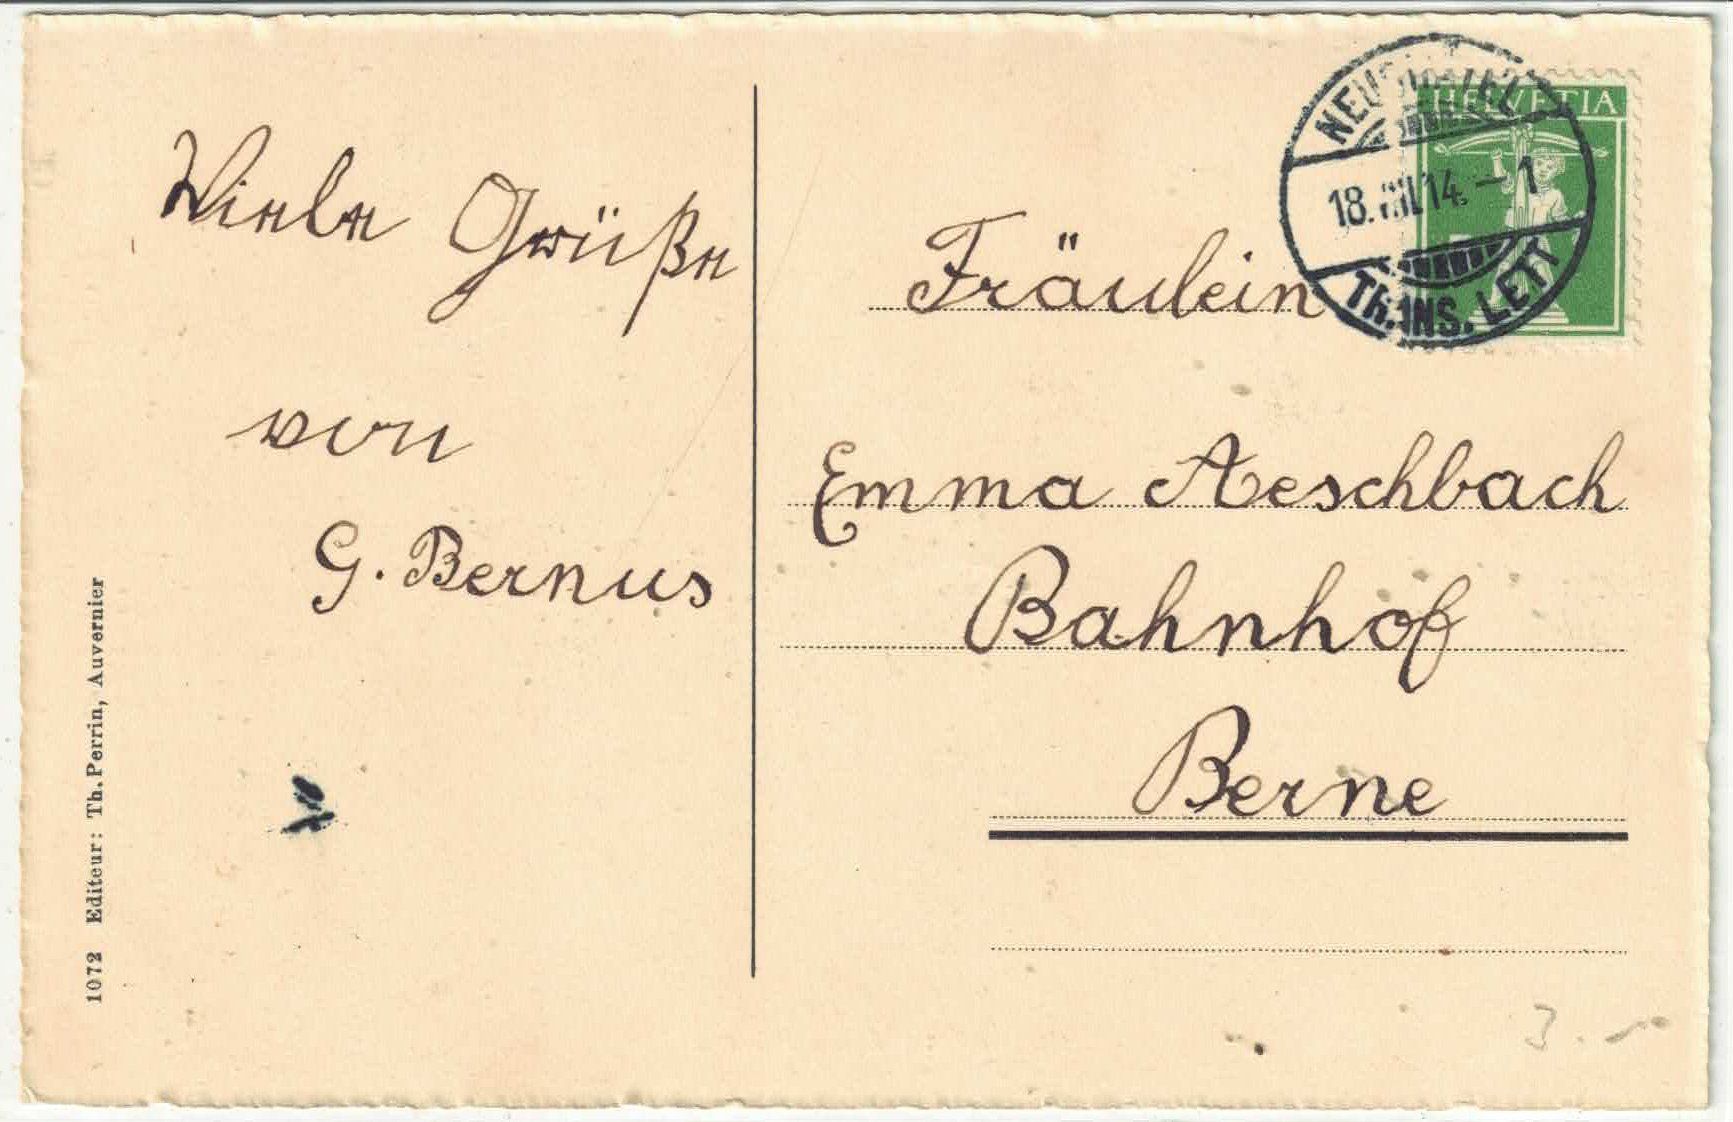 Viele Grüße
von
G. Bernus
1072 Editeur: Th. Perrin, Auvernier
HELVETIA
NEUCHATEL
18. VIII 14. – 1
TRANS. LETT
Fräulein
Emma Aeschbach
Bahnhof
Berne
3.